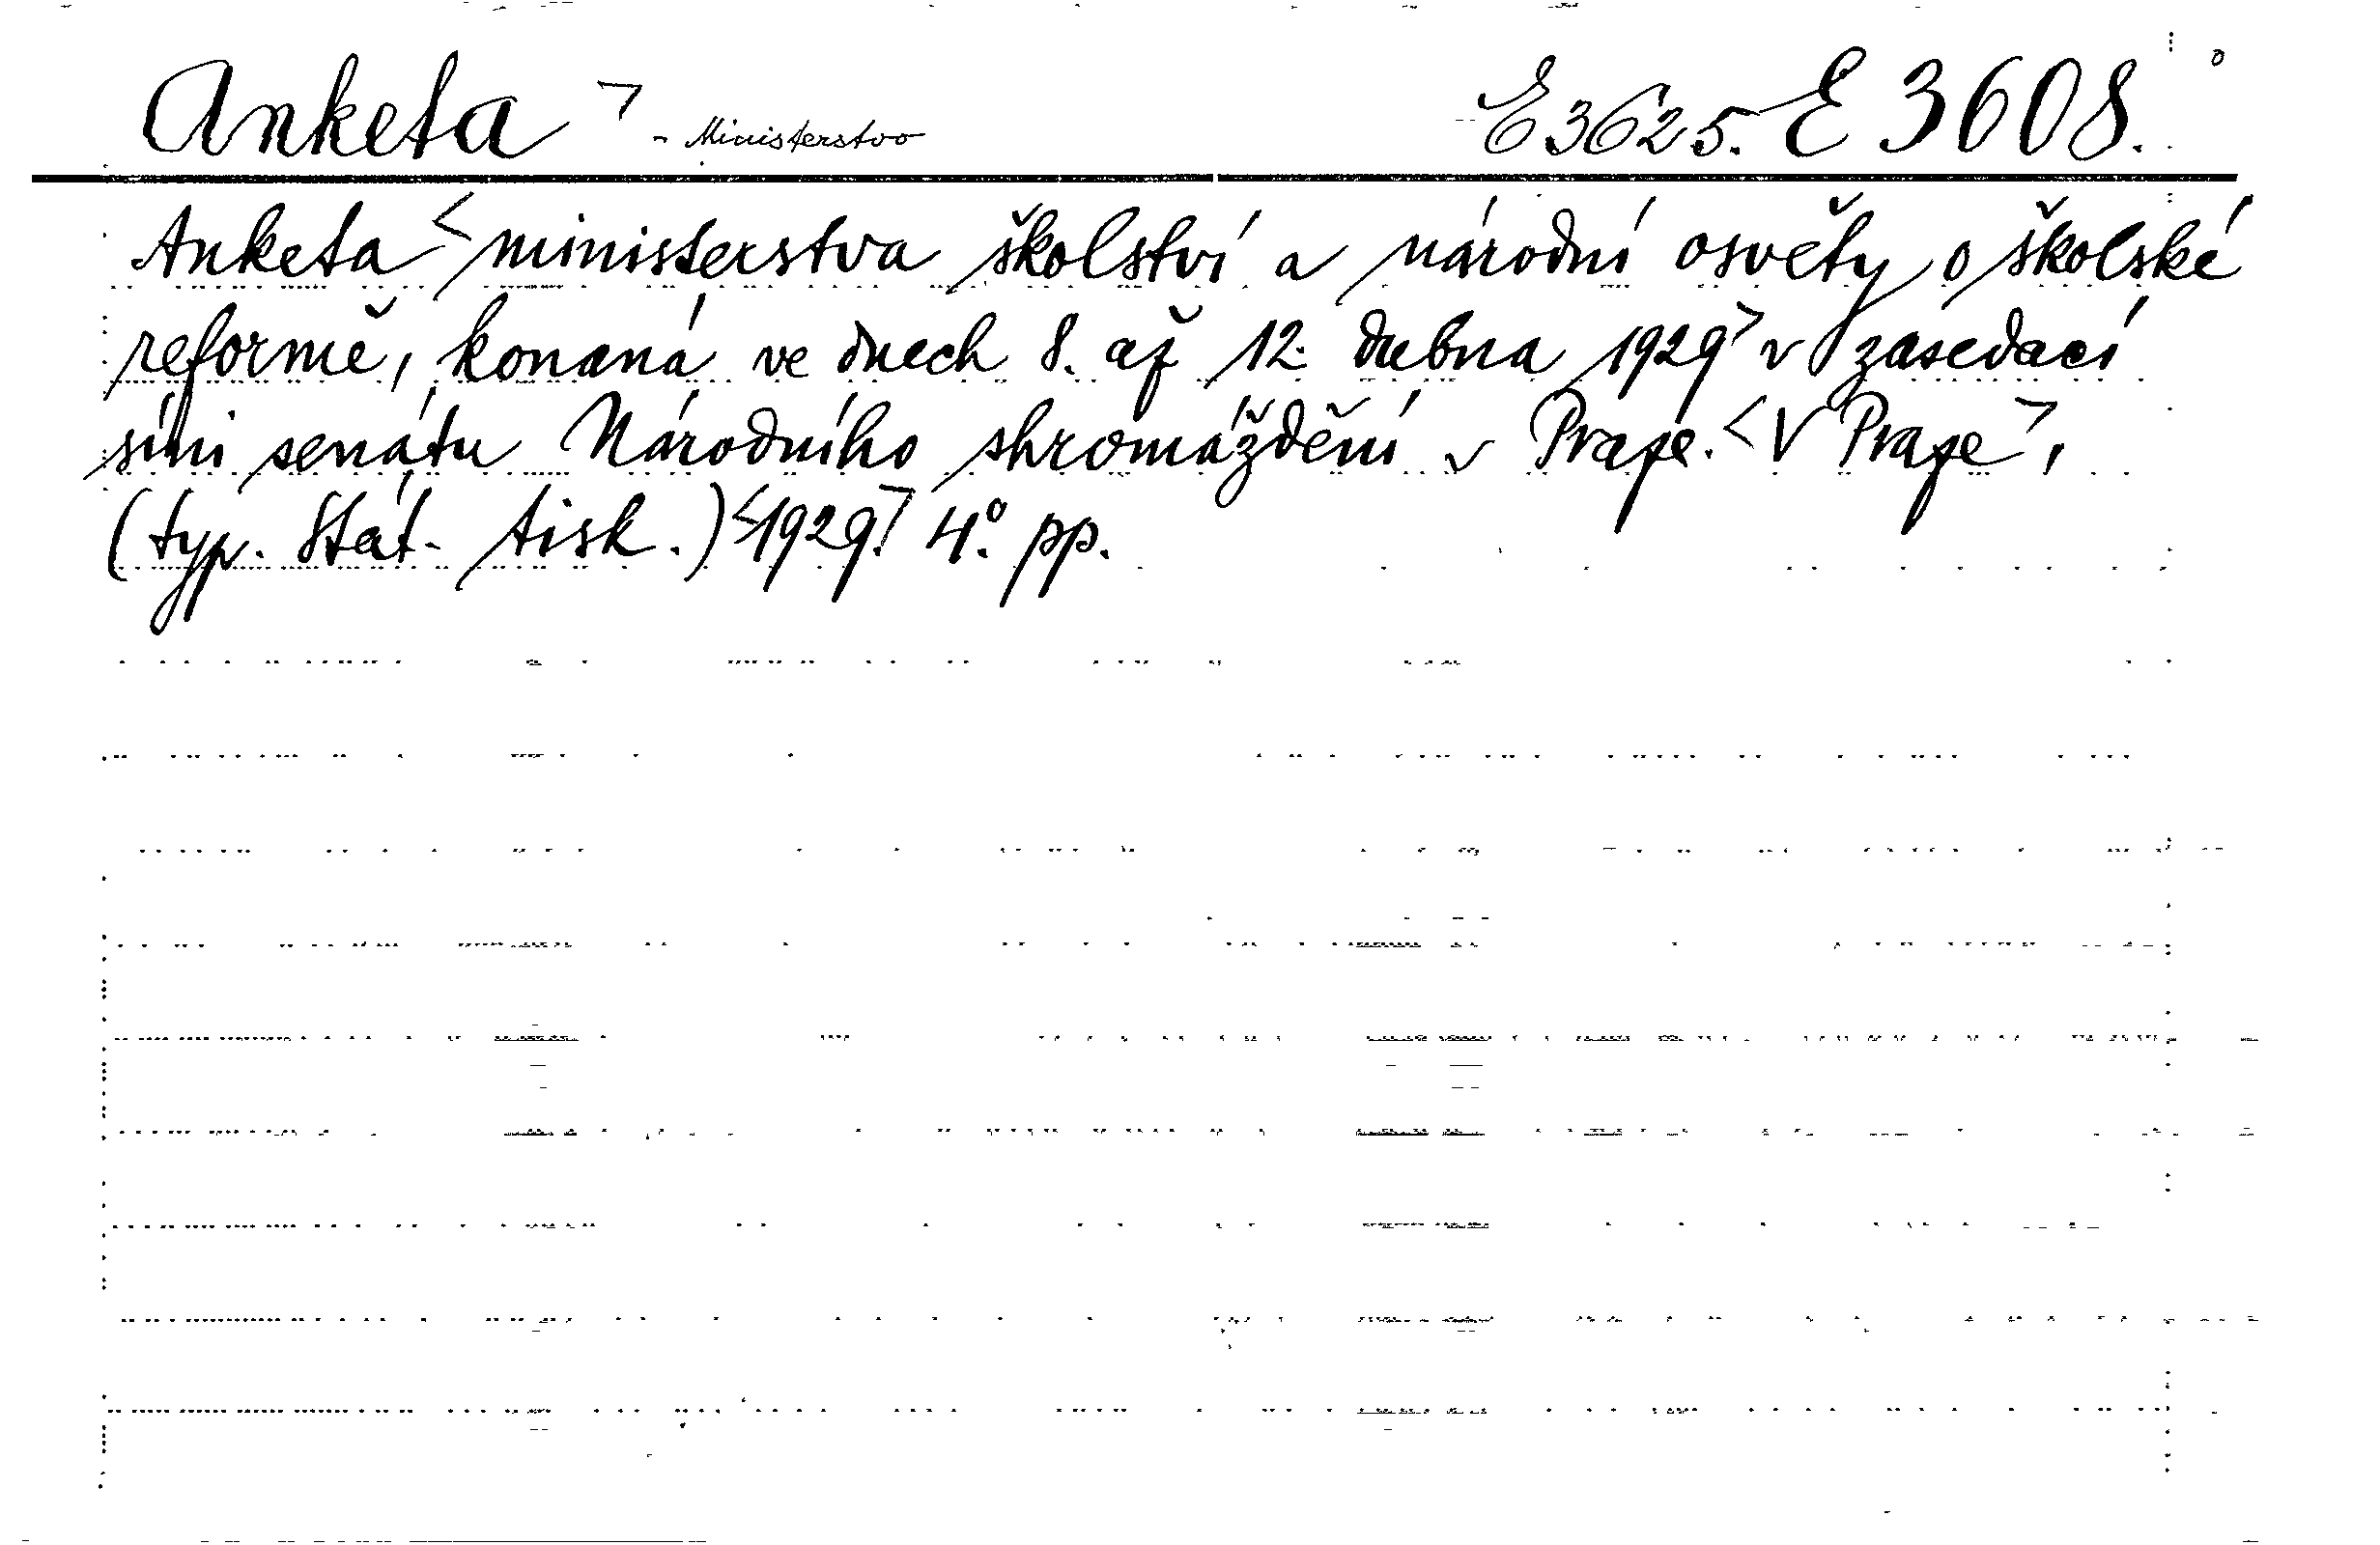 Anketa ¬ - Ministerstvo E 3625. E 3608.
Anketa < ministerstva školství a národní osvěty o školské
reformě, konaná ve dnech 8. až 12. dubna 1929 ¬ v zasedací
síni senátu Národního shromáždění v Praze. < V Praze ¬,
(typ. Stát. tisk.) < 1929. ¬ 4º. pp.